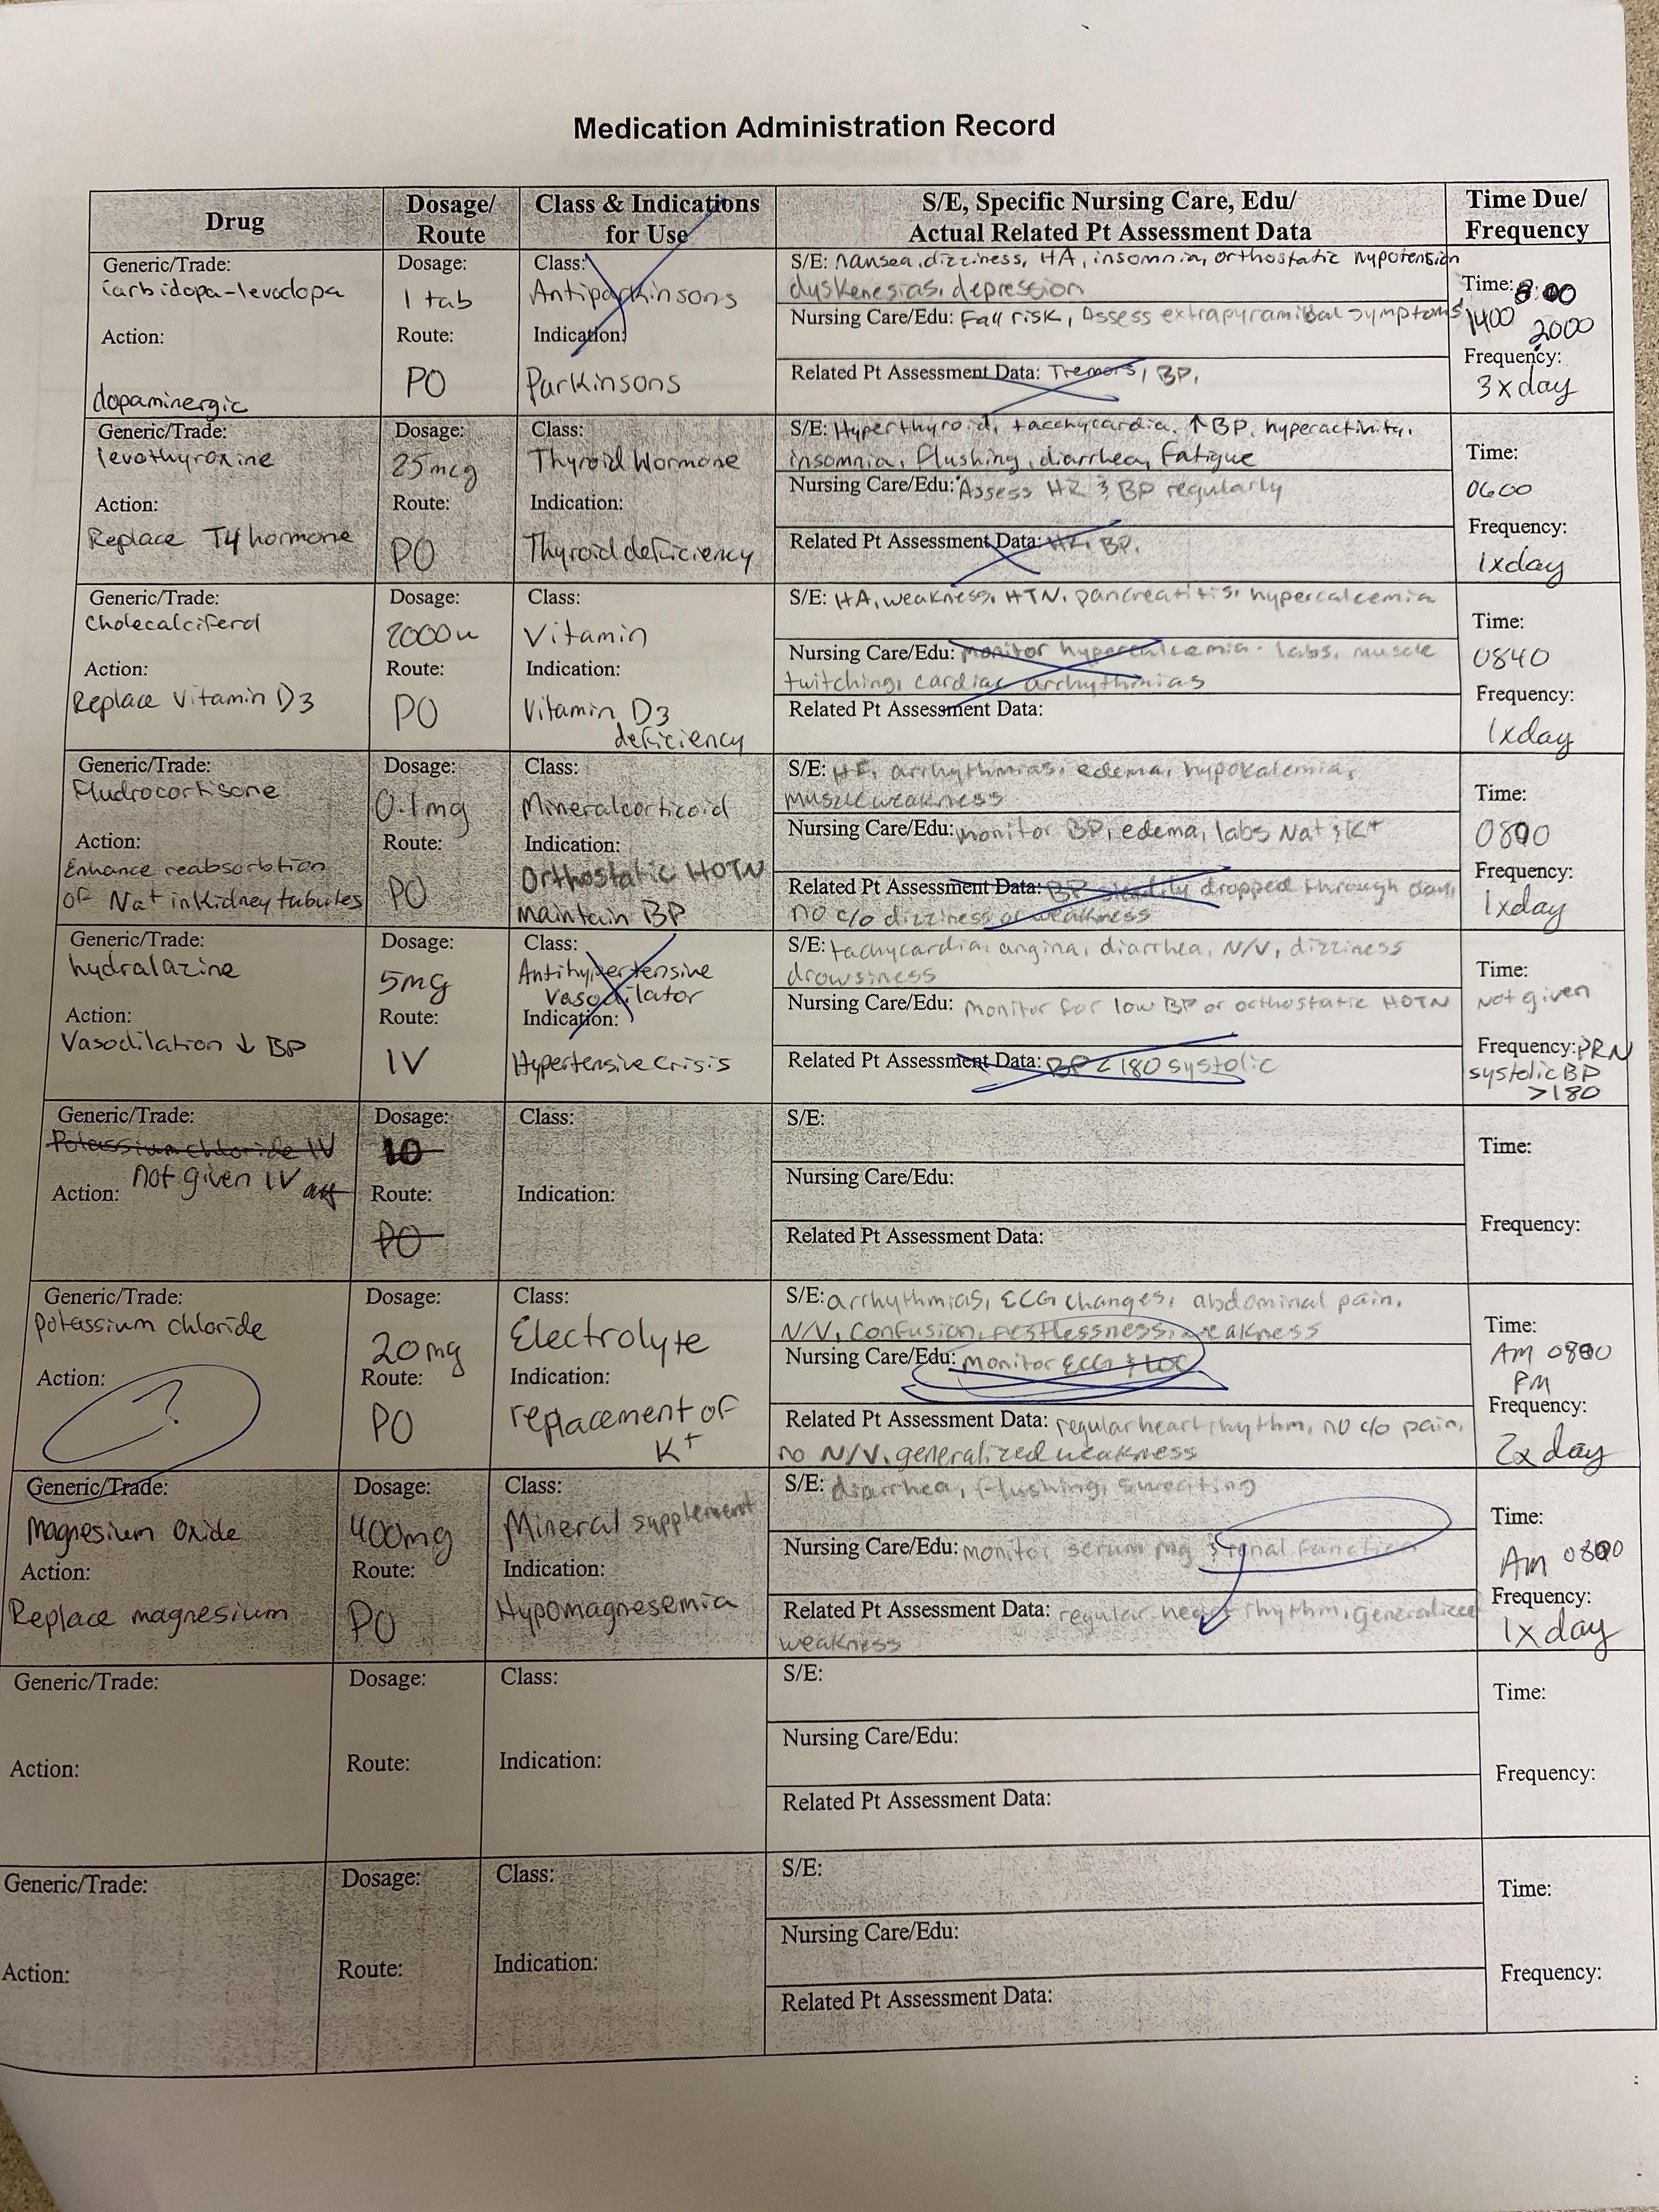 Medication Administration Record
Drug
Dosage/
Route
Class & Indications
for Use
S/E, Specific Nursing Care, Edu/
Actual Related Pt Assessment Data
Time Due/
Frequency
Generic/Trade:
carbidopa-levodopa
Action:
dopaminergic
Dosage:
1 tab
Route:
PO
Class:
Antiparkinsons
Indication:
Parkinsons
S/E: nausea, dizziness, HA, insomnia, orthostatic hypotension
dyskenesias, depression
Nursing Care/Edu: Fall risk, Assess extrapyramidal symptoms
Related Pt Assessment Data: Tremors, BP,
Time: 800
1400 2000
Frequency:
3x day
Generic/Trade:
levothyroxine
Action:
Replace T4 hormone
Dosage:
25mcg
Route:
PO
Class:
Thyroid Hormone
Indication:
Thyroid deficiency
S/E: Hyperthyroid, tacchycardia, ↑BP, hyperactivity,
insomnia, flushing, diarrhea, Fatigue
Nursing Care/Edu: Assess HR & BP regularly
Related Pt Assessment Data: HR, BP,
Time:
0600
Frequency:
1xday
Generic/Trade:
Cholecalciferol
Action:
Replace Vitamin D3
Dosage:
2000u
Route:
PO
Class:
Vitamin
Indication:
Vitamin D3
deficiency
S/E: HA, weakness, HTN, pancreatitis, hypercalcemia
Nursing Care/Edu: monitor hypercalcemia - labs, muscle
twitching, cardiac arrhythmias
Related Pt Assessment Data:
Time:
0840
Frequency:
1xday
Generic/Trade:
Fludrocortisone
Action:
Enhance reabsorbtion
of Na+ in Kidney tubules
Dosage:
0.1mg
Route:
PO
Class:
Mineralcorticoid
Indication:
Orthostatic HOTN
maintain BP
S/E: HF, arrhythmias, edema, hypokalemia,
muscle weakness
Nursing Care/Edu: monitor BP, edema, labs Na+ & K+
Related Pt Assessment Data: BP steadily dropped through day,
no c/o dizziness or weakness
Time:
0800
Frequency:
1xday
Generic/Trade:
hydralazine
Action:
Vasodilation ↓ BP
Dosage:
5mg
Route:
IV
Class:
Antihypertensive
vasodilator
Indication:
Hypertensive Crisis
S/E: tachycardia, angina, diarrhea, N/V, dizziness
drowsiness
Nursing Care/Edu: monitor for low BP or orthostatic HOTN
Related Pt Assessment Data: BP < 180 systolic
Time:
Not given
Frequency: PRN
systolic BP
>180
Generic/Trade:
Potassium chloride IV
not given IV
Action:
Dosage:
10
Route:
PO
Class:
Indication:
S/E:
Nursing Care/Edu:
Related Pt Assessment Data:
Time:
Frequency:
Generic/Trade:
potassium chloride
Action:
?
Dosage:
20mg
Route:
PO
Class:
Electrolyte
Indication:
replacement of
K+
S/E: arrhythmias, ECG changes, abdominal pain,
N/V, confusion, restlessness, weakness
Nursing Care/Edu: monitor ECG & LOC
Related Pt Assessment Data: regular heart rhythm, no c/o pain,
no N/V, generalized weakness
Time:
AM 0800
PM
Frequency:
2x day
Generic/Trade:
Magnesium Oxide
Action:
Replace magnesium
Dosage:
400mg
Route:
PO
Class:
Mineral supplement
Indication:
Hypomagnesemia
S/E: diarrhea, flushing, sweating
Nursing Care/Edu: monitor serum mg & renal function
Related Pt Assessment Data: regular heart rhythm, generalized
weakness
Time:
AM 0800
Frequency:
1x day
Generic/Trade:
Action:
Dosage:
Route:
Class:
Indication:
S/E:
Nursing Care/Edu:
Related Pt Assessment Data:
Time:
Frequency:
Generic/Trade:
Action:
Dosage:
Route:
Class:
Indication:
S/E:
Nursing Care/Edu:
Related Pt Assessment Data:
Time:
Frequency: